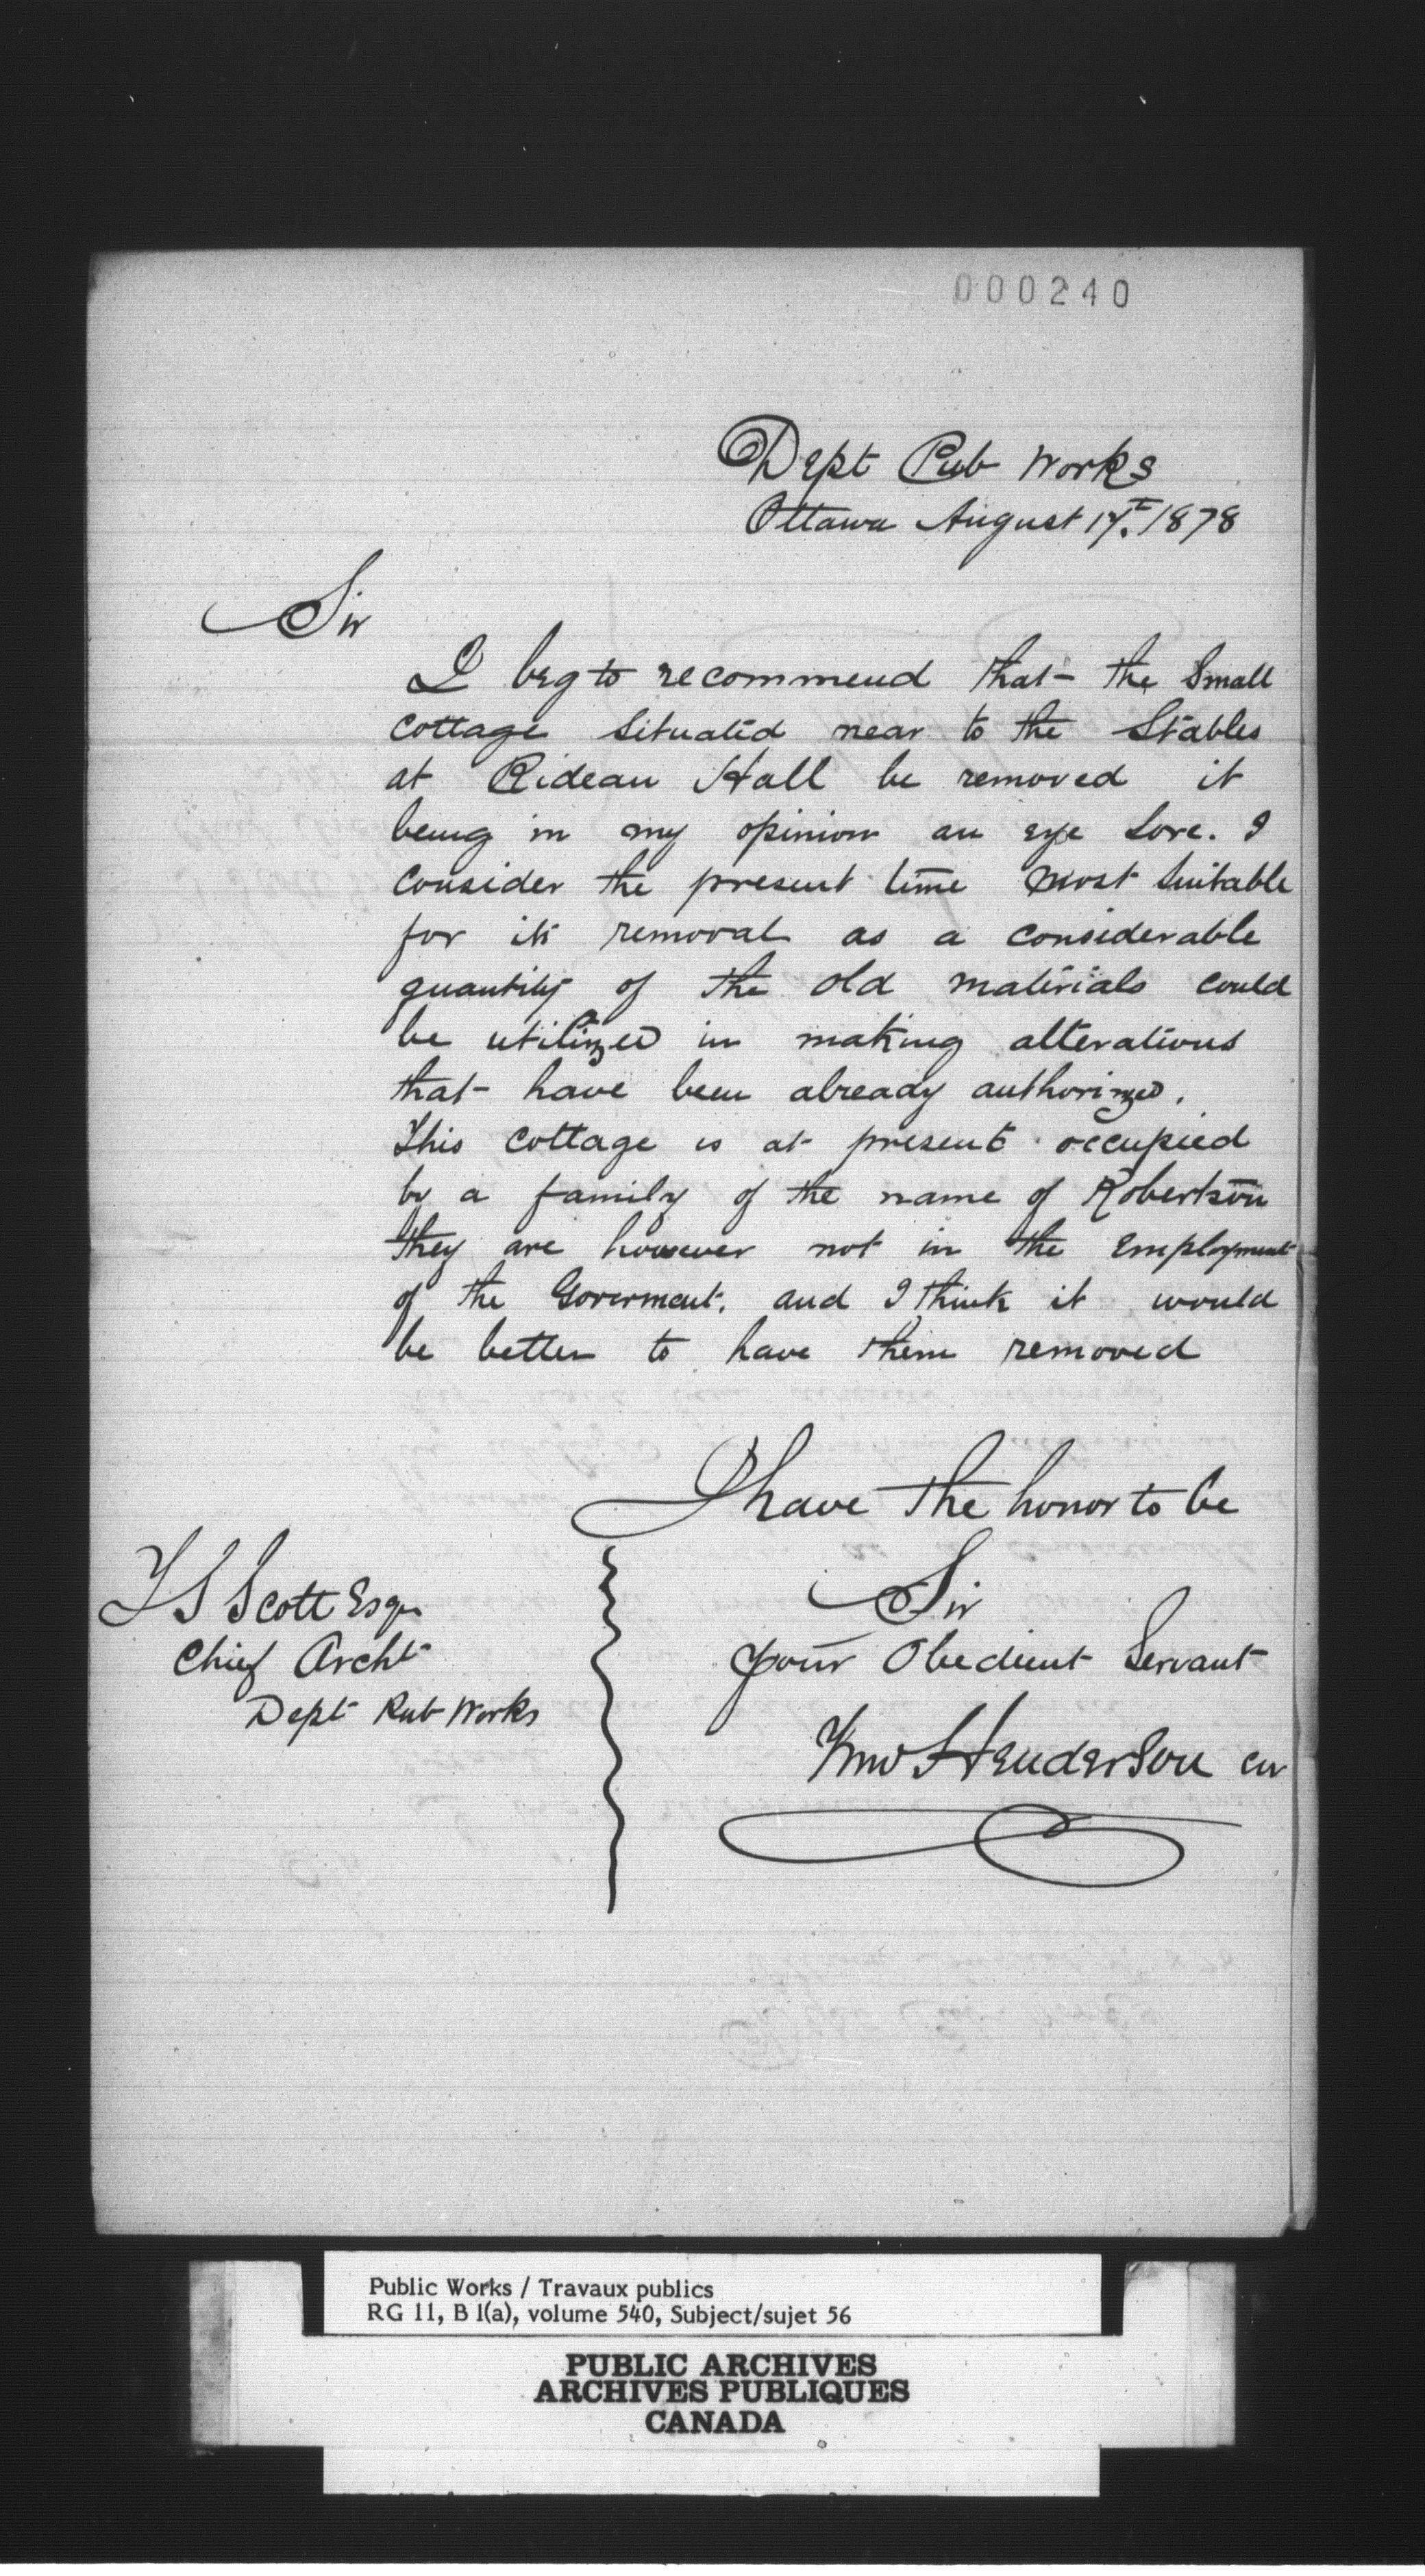 000240
Dept Pub Works
Ottawa August 17th 1878
Sir
I beg to recommend that the Small
cottage situated near to the Stables
at Rideau Hall be removed it
being in my opinion an eye sore. I
consider the present time most suitable
for its removal as a considerable
quantity of the old materials could
be utilized in making alterations
that have been already authorized.
This cottage is at present occupied
by a family of the name of Robertson
they are however not in the employment
of the Goverment. and I think it would
be better to have them removed
I have the honor to be
Sir
your Obedient Servant
Wm Henderson
T S Scott Esqr
Chief Archt
Dept Pub Works
Public Works / Travaux publics
RG 11, B 1(a), volume 540, Subject/sujet 56
PUBLIC ARCHIVES
ARCHIVES PUBLIQUES
CANADA